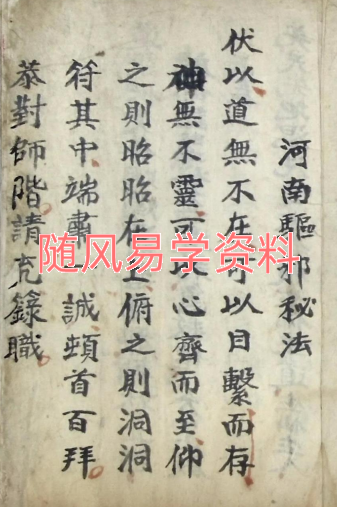 河南驅邪秘法
伏以道無不在可以目繫而存
神無不靈可以心齊而至仰
之則昭昭在上俯之則洞洞
符其中端肅一誠頓首百拜
恭對師階請充錄職
随风易学资料